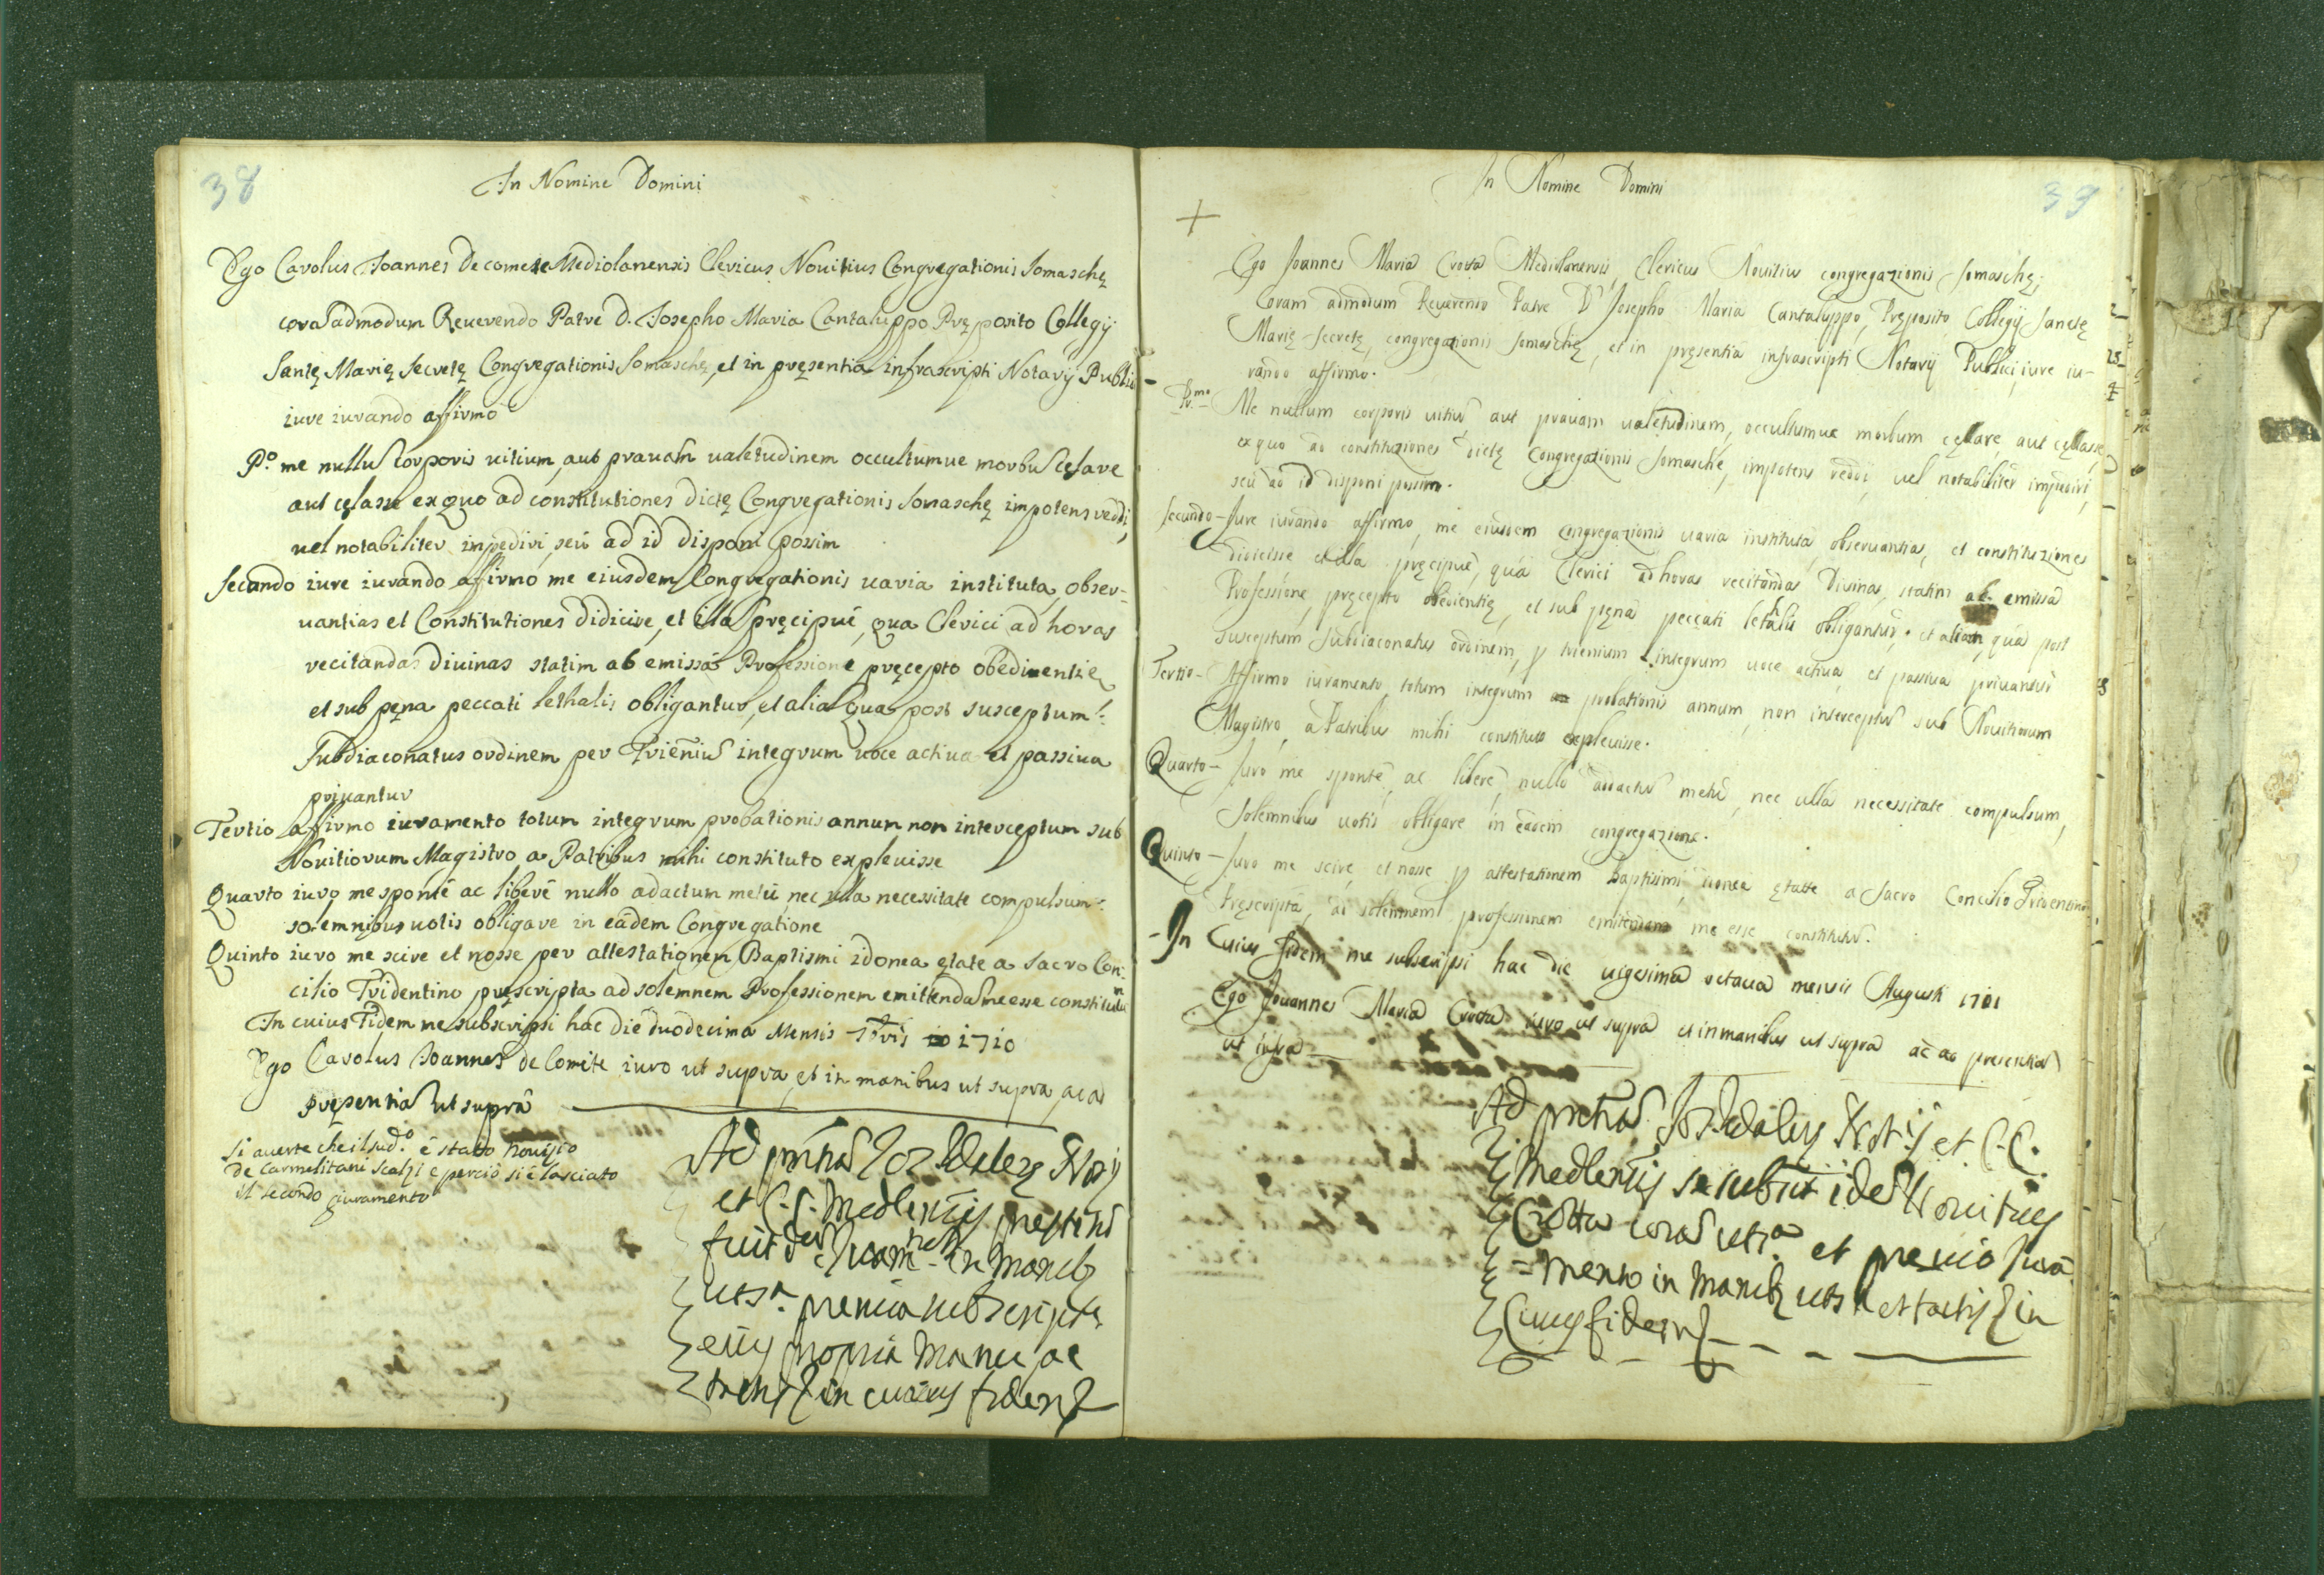 38
In Nomine Domini
Ego Carolus Ioannes De comete Mediolanensis Clericus Nouitius Congregationis Somaschę
corã admodum Reuerendo Patre D. Iosepho Maria Cantaluppo Pręposito Collegij
Santę Marię Secretę Congregationis Somaschę, et in pręsentia infrascripti Notarij Publici
iure iurando affirmo
P.º me nullũ corporis uitium, aut prauam ualetudinem occultumue morbũ cęlare
aut cęlasse ex quo ad constitutiones dictę Congregationis Somaschę impotens reddi,
uel notabiliter impediri, seù ad id disponi possim
Secundo iure iurando affirmo me eiusdem Congregationis uaria instituta, obser-
uantias et Constitutiones didicire, et illã pręcipuè, qua Clerici ad horas
recitandas diuinas statim ab emissa Professione pręcepto obedinentię
et sub pęna peccati lethalis obligantur, et aliã qua post susceptum
Subdiaconatus ordinem per Trieniũ integrum uoce actiua et passiua
priuantur
Tertio affirmo iuramento totum integrum probationis annum non interceptum sub
Nouitiorum Magistro a Patribus mihi constituto expleuisse
Quarto iuro me spontè ac liberè nullo adactum metù, nec ulla necessitate compulsum
solemnibus uotis obligare in eàdem Congregatione
Quinto iuro me scire et nosse per attestationem Baptismi idonea ętate a Sacro Con-
cilio Tridentino pręscripta ad solemnem Professionem emittendã me esse constitutum
In cuius Fidem me subscripsi hac die duodecima Mensis 7bris 1710
Ego Carolus Ioannes de Comite iuro ut supra, et in manibus ut supra, ac ad
pręsentiã ut suprà
Si auerte che il sud.º è stato nouizio
de Carmelitani Scalzi e perciò si è lasciato
il secondo giuramento
et C. C. Medlensis
fuit in manib
propria manu ac
in cuius fidem
39
In Nomine Domini
Ego Joannes Maria Crotta Mediolanensis, Clericus Nouitius congregazionis Somaschę,
Coram admodum Reuerendo Patre D. Josepho Maria Cantaluppo, Pręposito Collegij Sanctę
Marię Secretę, congregazionis Somaschę, et in pręsentia infrascripti Notarij Publici, iure iu-
rando affirmo.
Pr.mo Me nullum corporis uitiũ, aut prauam ualetudinem, occultumue morbum cęlare, aut cęlasse,
ex quo ad constituziones dictę Congregazionis Somaschę, impotens reddi, uel notabiliter impediri,
seù ad id disponi possim.
Secundo - Jure iurando affirmo, me eiusdem congregazionis uaria instituta, obseruantias, et constituziones
didicisse et illa pręcipuè, quà Clerici ad horas recitandas Diuinas, statim ab emissa
Professione, pręcepto obedientię, et sub pęna peccati letalis obligantur; et aliam, quà post
susceptum Subdiaconatus ordinem, p trienium integrum uoce actiua, et passiua priuantur
Tertio - Affirmo iuramento, totum integrum probationis annum, non interceptũ sub Nouitiorum
Magistro, a Patribus mihi constituto expleuisse.
Quarto - Juro me spontè, ac liberè, nullo adactũ metù, nec ulla necessitate compulsum,
Solemnibus uotis obligare in eàdem congregazione.
Quinto - Juro me scire, et nosse p attestationem Baptismi, idonea ętate a Sacro Concilio Tridentino
Pręscripta, ad solemnem professionem emitendam me esse constitutũ.
In Cuius fidem me subscripsi hac die uigesima octaua mensis Augusti 1701
Ego Joannes Maria Crotta iuro ut suprà et in manibus ut suprà ac ad presentiã
ut infra
et C. C.
Crotta et preuio Jura
=mento in manib et
Cuius fidem